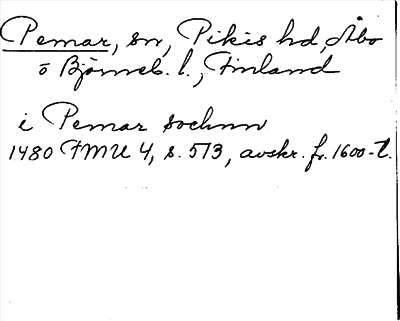 Pemar, sn, Pikis hd, Åbo
o Björneb. l., Finland
i Pemar sochnn
1480 FMU 4, s. 513, avskr. fr. 1600-t.